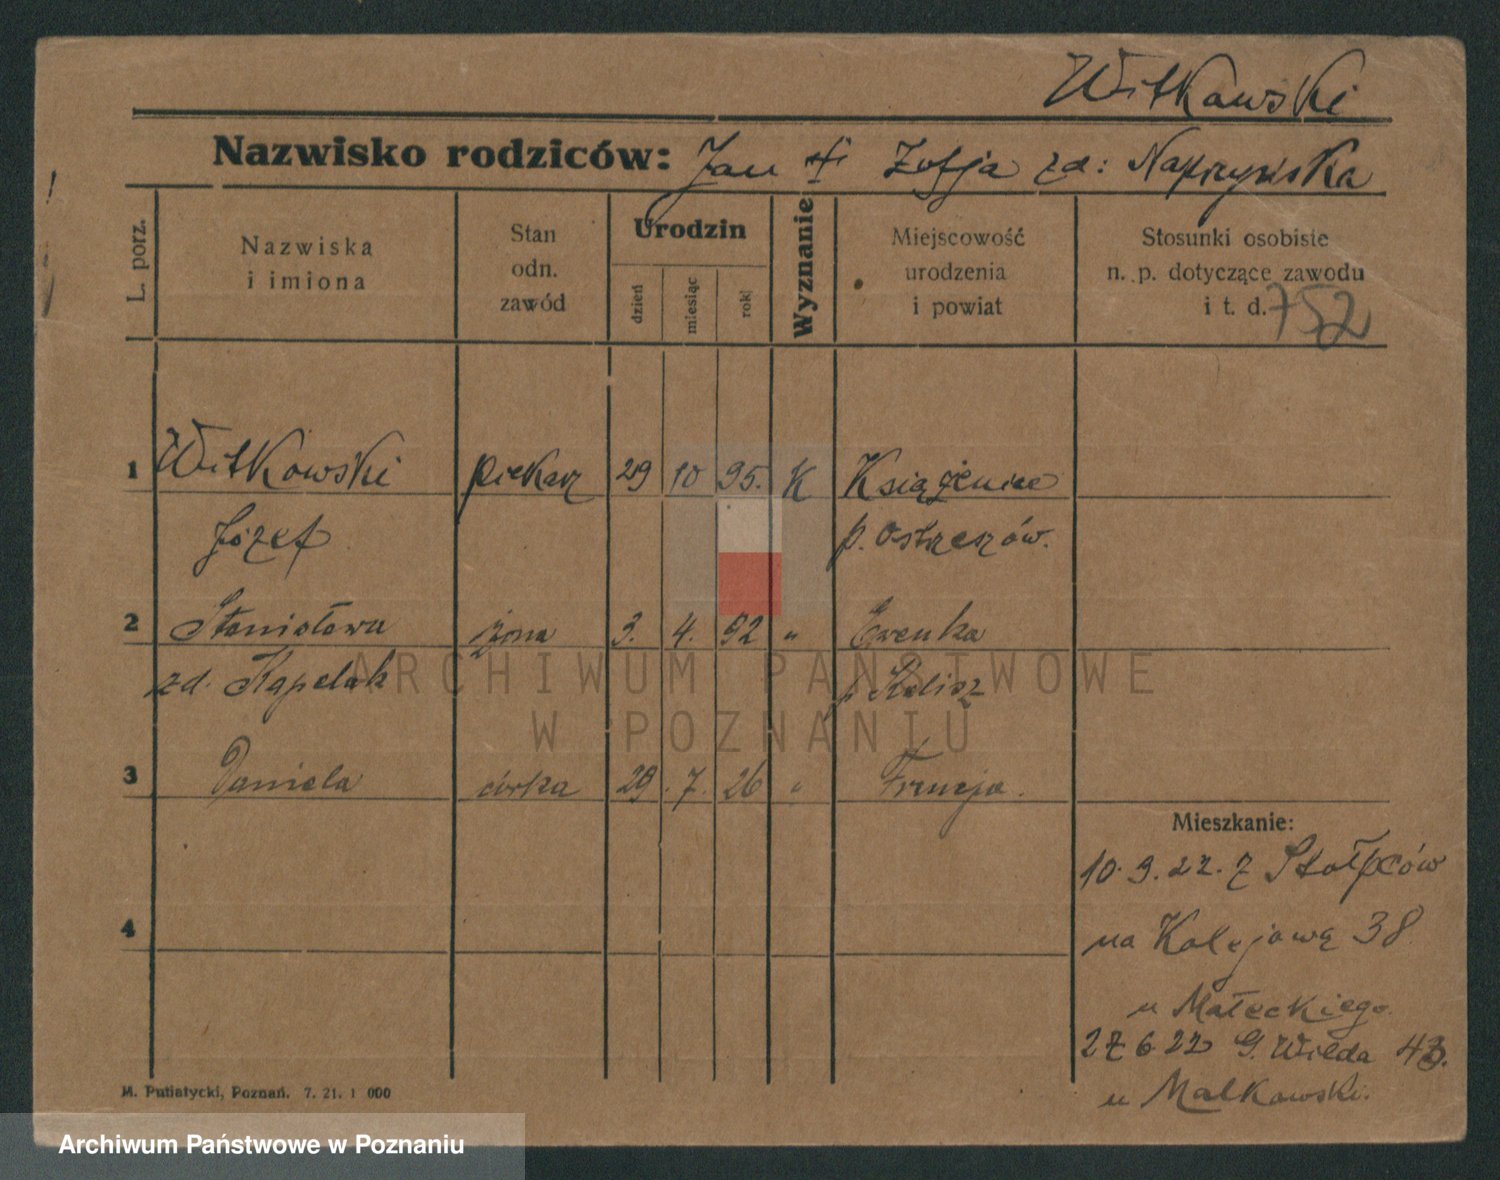 Witkowski
Nazwisko rodziców: Jan i Zofja zd:
L. porz.
Nazwiska
i imiona
Stan
odn.
zawód
Urodzin
dzień
miesiąc
rok
Wyznanie
Miejscowość
urodzenia
i powiat
Stosunki osobiste
n. p. dotyczące zawodu
i t. d. 752
1 Witkowski piekarz 29 10 95. K Książenice
Józef p. Ostrzeszów.
2 Stanisława żona 3. 4. 92 "
zd. Kąpelak p. Kalisz
3 Daniela córka 29. 7. 26 " Francja.
4
Mieszkanie:
10. 9. 22. z Stołpców
na Kolejową 38
u Małeckiego
27 6 22 G. Wilda 43.
u Malkowski.
M. Putiatycki, Poznań. 7. 21. 1 000
ARCHIWUM PAŃSTWOWE
W POZNANIU
Archiwum Państwowe w Poznaniu